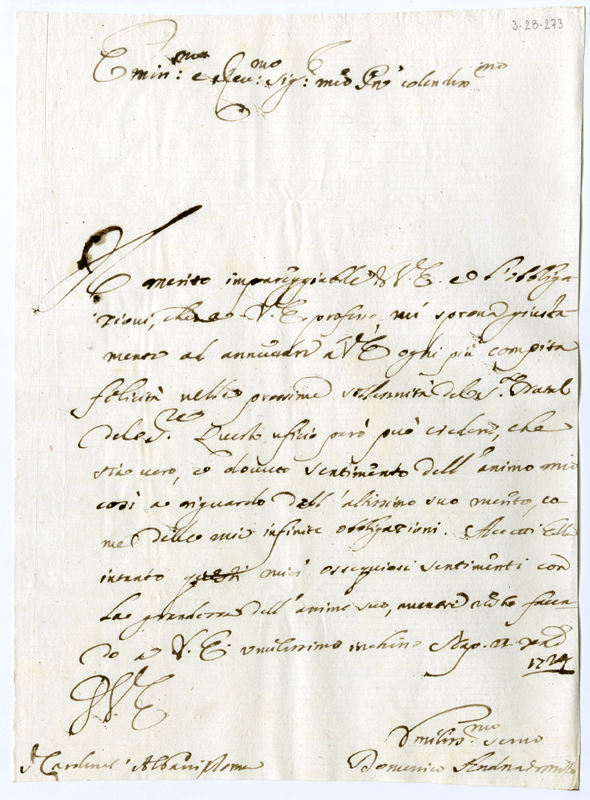 3-28-273
Emin:mo e Rev:mo Sig: mio Pne colendmo
Il merito impareggiabile di V. E. e l'obliga-
zioni, che a V. E. professo, mi sprona giusta
mente ad annuntiar à V. E. ogni più compita
felicità nelle prossime solennità del S.to Natal
del S.re Questo uficio però può credere, che
sia vero, e dovuto sentimento dell'animo mio
così a riguardo dell'altissimo suo merito, co
me delle mie infinite obbligazioni. Accetti Ella
intanto miei ossequiosi sentimenti con
la grandezza dell'animo suo, mentre resto facen
do a V. E. umilissimo inchino Nap. 22 Xbre
1724
D. V. E.
Umiliss.mo servo
S.r Cardinal' Albani Roma
Domenico